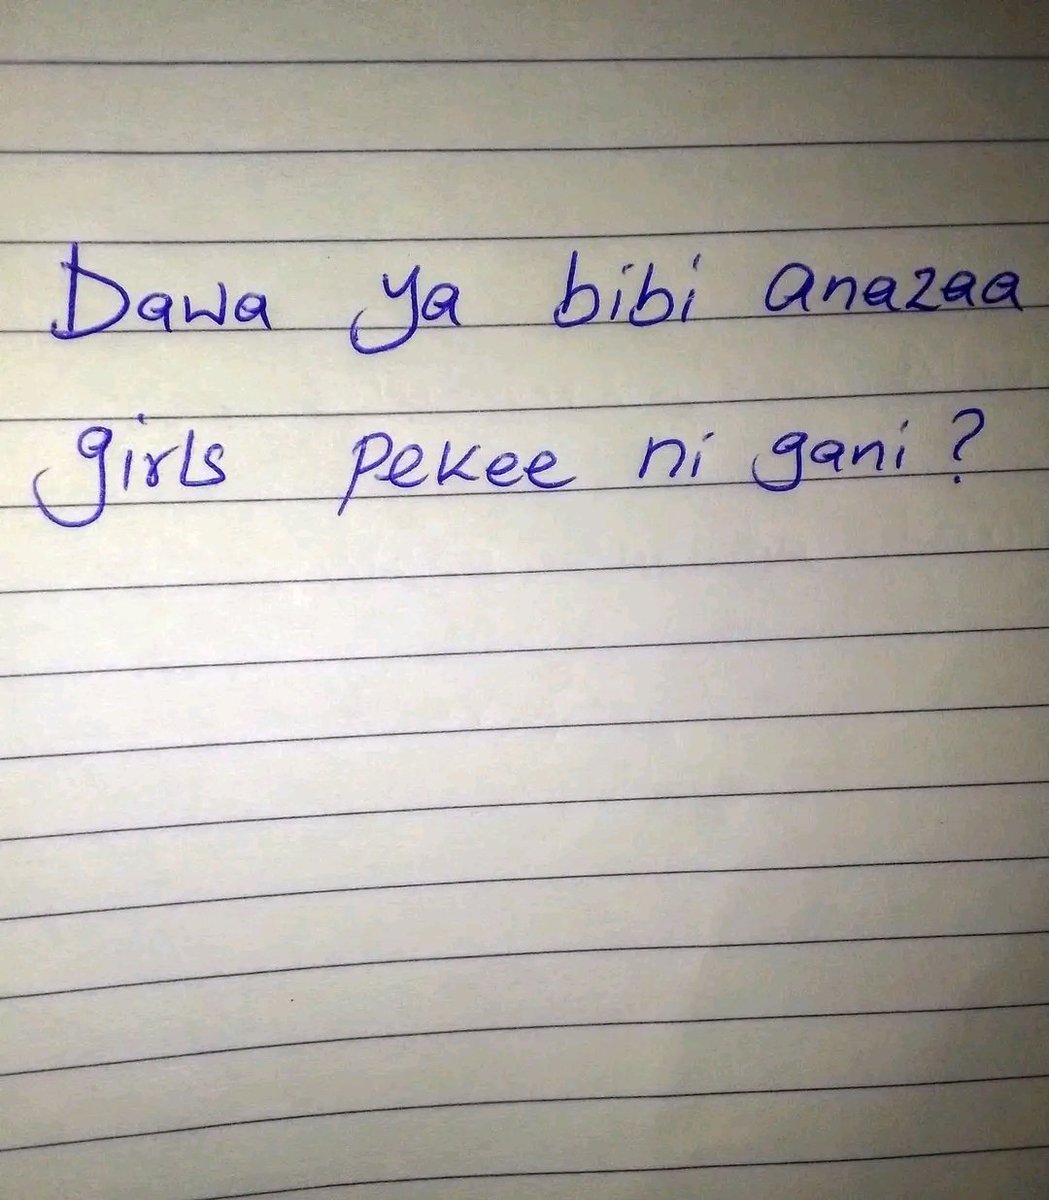 Dawa ya bibi anazaa
girls pekee ni gani?